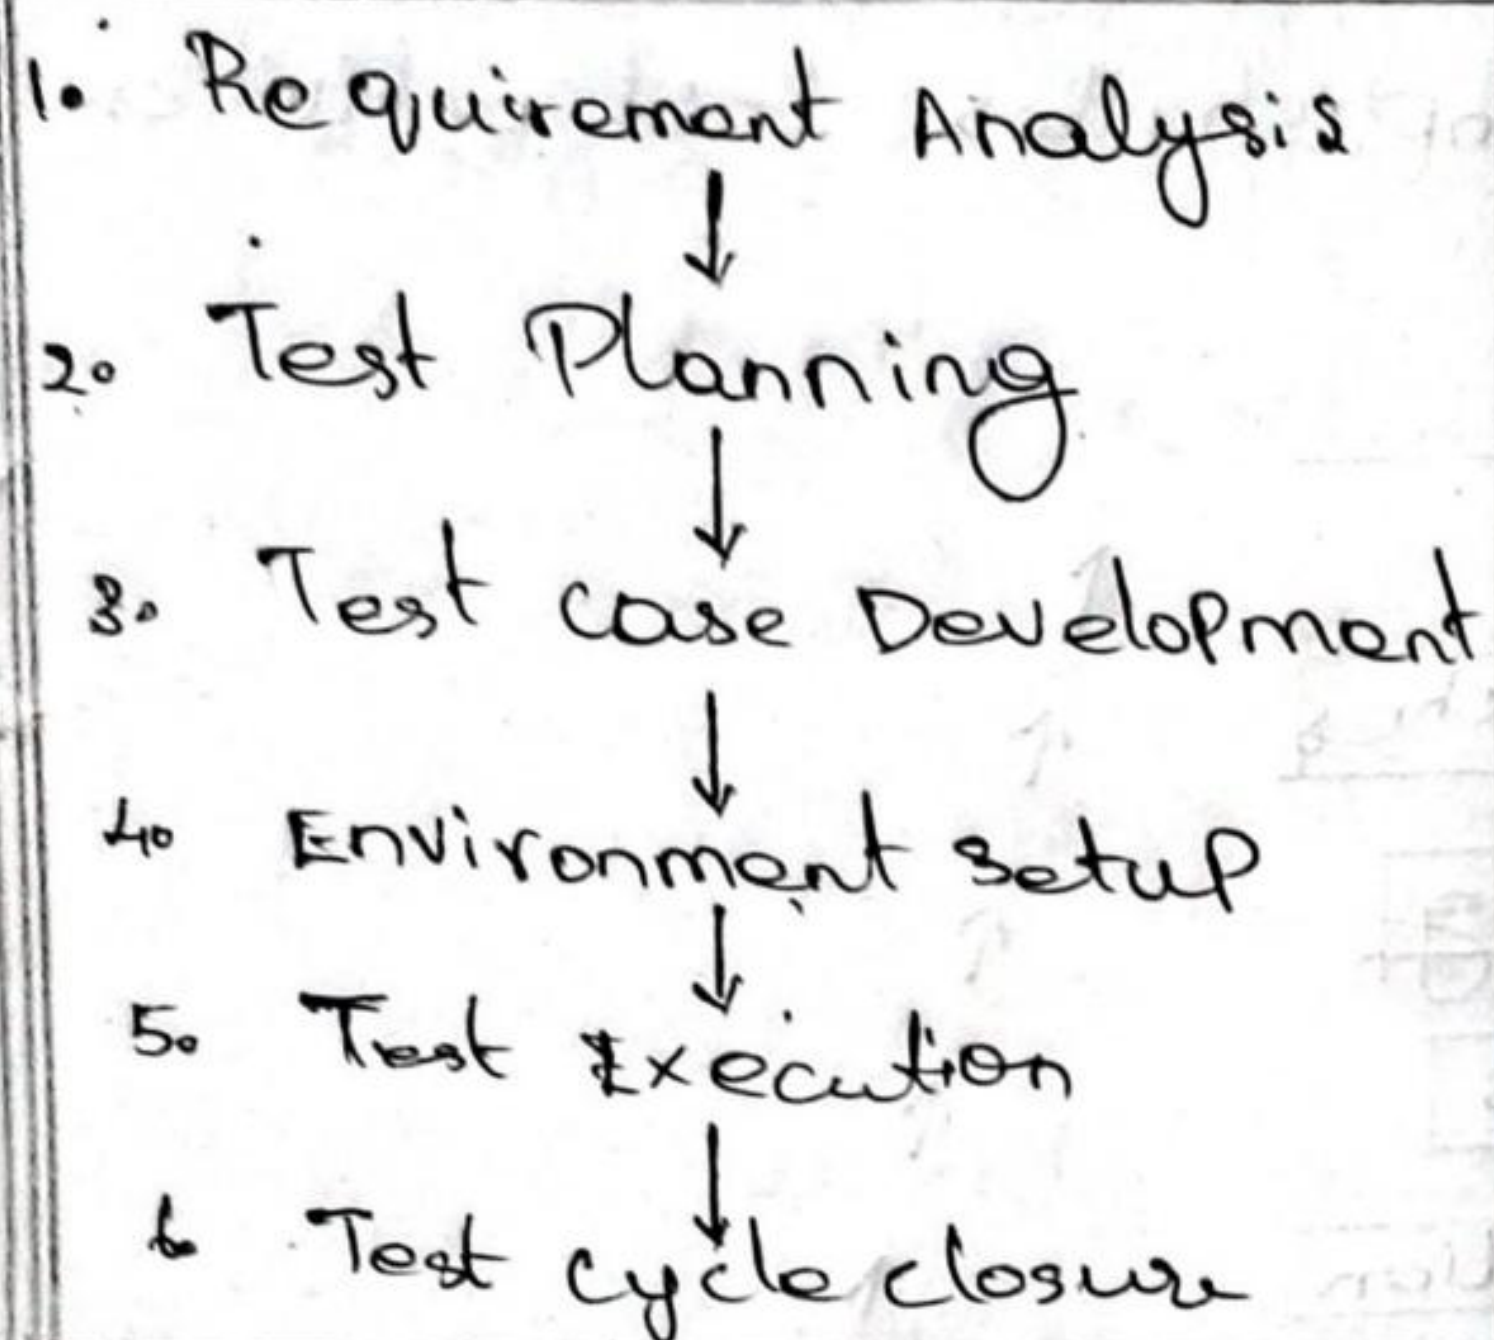 1. Requirement Analysis
↓
2. Test Planning
↓
3. Test case Development
↓
4. Environment Setup
↓
5. Test Execution
↓
6 Test cycle closure